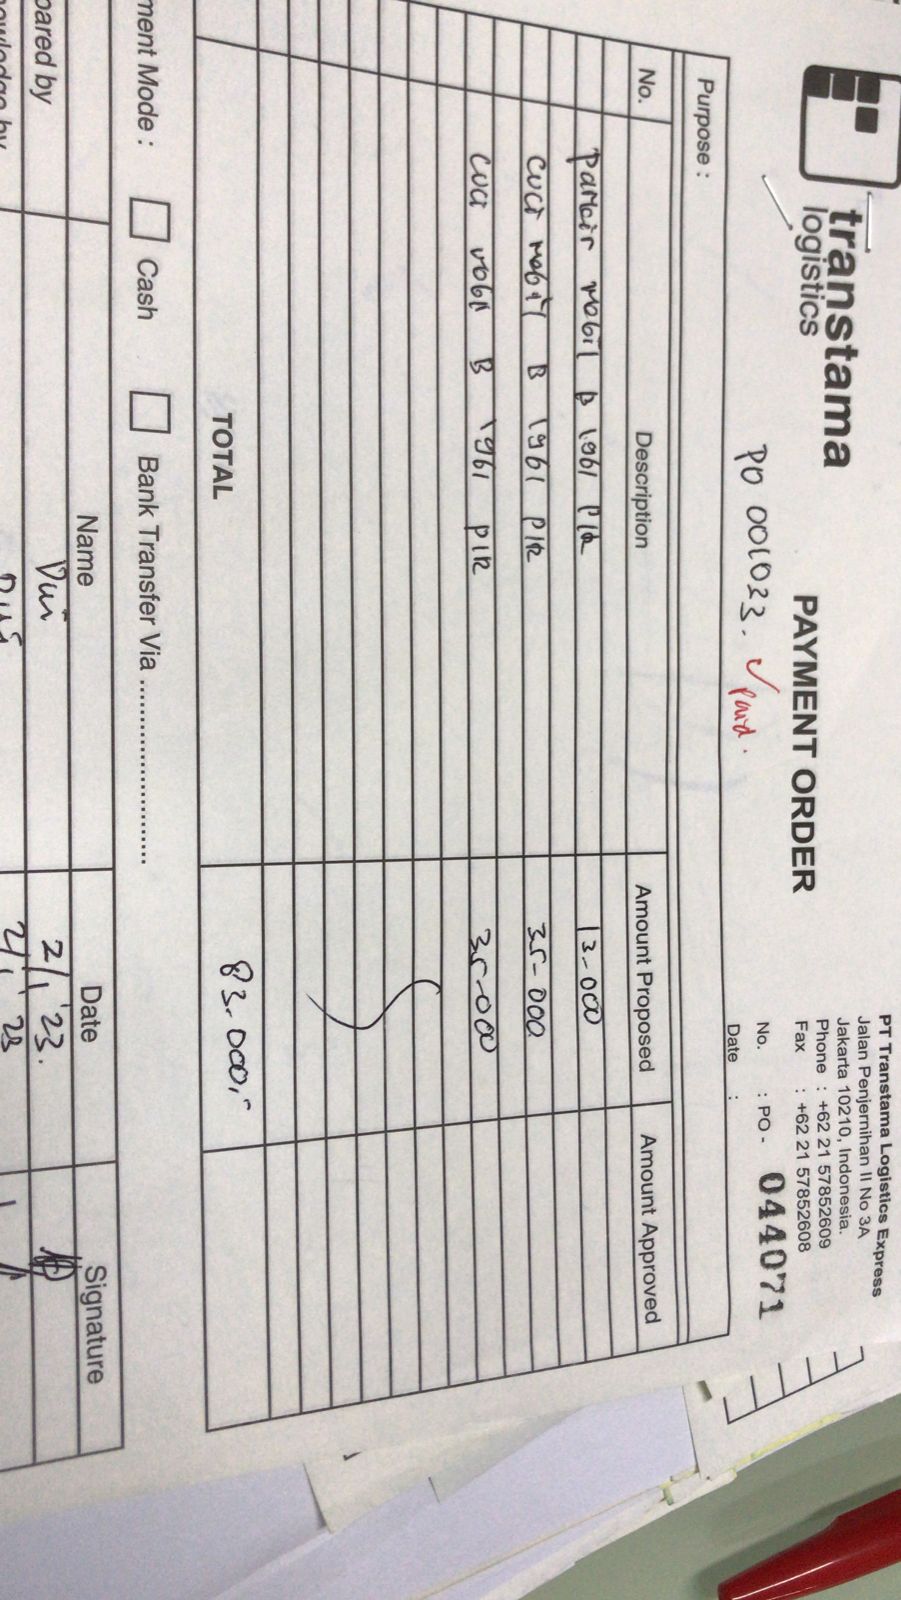 transtama
logistics
PAYMENT ORDER
PT Transtama Logistics Express
Jalan Penjernihan II No 3A
Jakarta 10210, Indonesia.
Phone : +62 21 57852609
Fax : +62 21 57852608
PO 001023. ✓ paid.
No. : PO - 044071
Date :
Purpose :
No. Description Amount Proposed Amount Approved
Parkir mobil B 1961 PIR 13.000
cuci mobil B 1961 PIR 35.000
cuci mobil B 1961 PIR 35.000
TOTAL 83.000,-
ment Mode : Cash Bank Transfer Via ........................
Name Date Signature
pared by Dwi 2/1 '23.
owledge by 2/1 '23